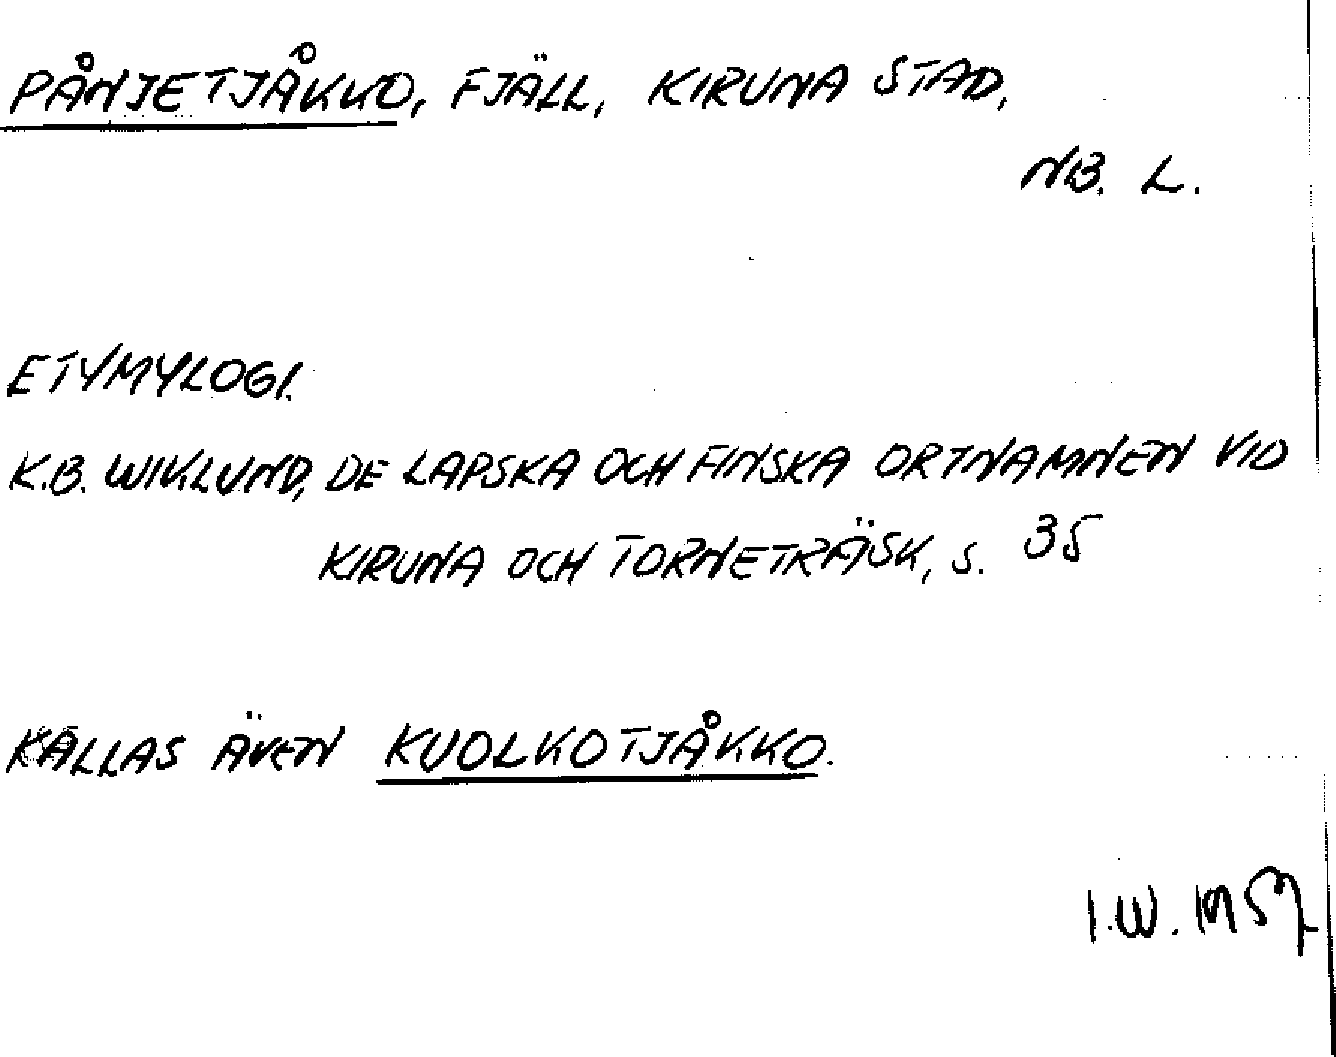 PÅNJETJÅKKO, FJÄLL, KIRUNA STAD,
NB. L.
ETYMYLOGI.
K.B. WIKLUND, DE LAPSKA OCH FINSKA ORTNAMNEN VID
KIRUNA OCH TORNETRÄSK, S. 35
KALLAS ÄVEN KUOLKOTJÅKKO.
I.W. 1957